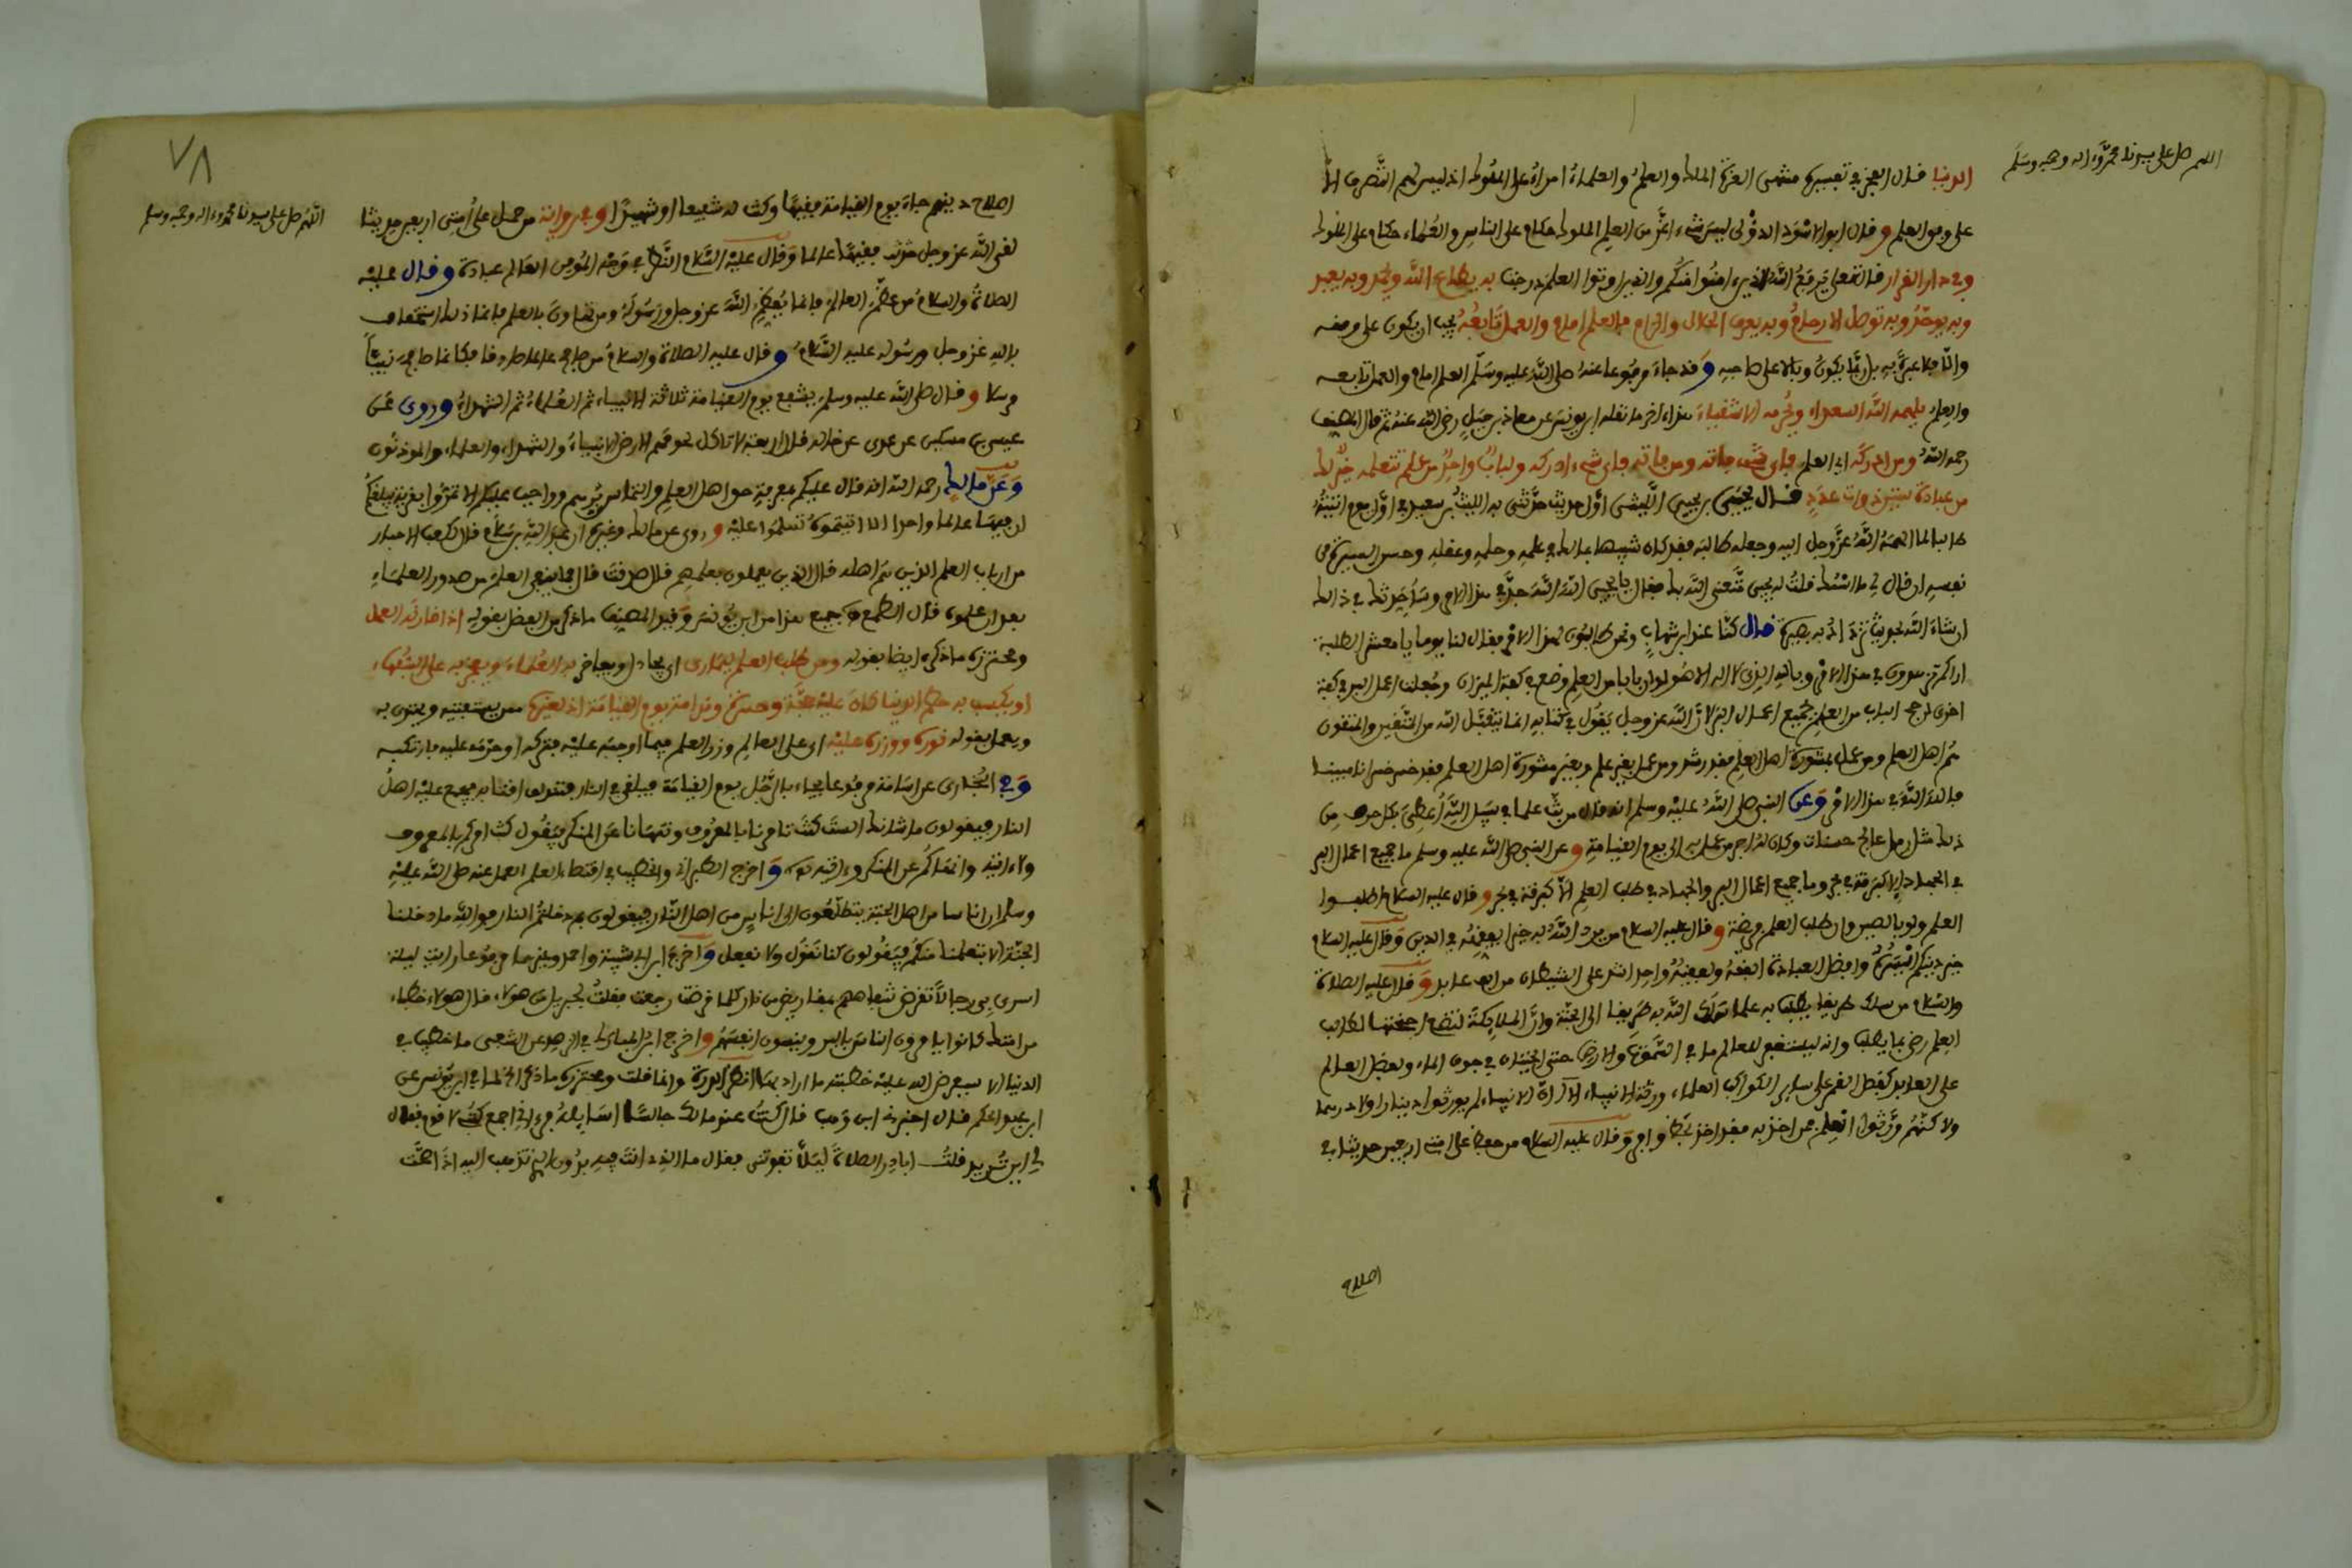 اللهم صل على سيدنا محمد وءاله وصحبه وسلم
الدنيا قال الفخر في تفسيره منتهى العزة الملك والعلم والعلماء امراء على الملوك اذ ليس لهم التصرف الا
على وفق العلم وقال ابو الاسود الدؤلي ليس شيء اعز من العلم الملوك حكام على الناس والعلماء حكام على الملوك
وفي دار القرار قال تعلى يرفع الله الذين ءامنوا منكم والذين اوتوا العلم درجت به يطاع الله ويحمد وبه يعبد
وبه يوحد وبه توصل الارحام وبه يعرف الحلال والحرام فالعلم امام والعمل تابعه يجب ان يكون على وفقه
والا فلا عبرة به بل ربما يكون وبالا على صاحبه وقد جاء مرفوعا عنه صلى الله عليه وسلم العلم امام والعمل تابعه
والعلم يلهمه الله السعداء ويحرمه الاشقياء هذا ءاخر ما نقله ابن يونس عن معاذ بن جبل رضي الله عنه ثم قال المصنف
رحمه الله ومن ادركه اي العلم فاي شيء فاته ومن فاته فاي شيء ادركه ولباب واحد من علم تتعلمه خير لك
من عبادة سنين ذوات عدد قال يحيى بن يحيى الليثي اول حديث حدثني به الليث بن سعيد في اول يوم اتيته
طالبا لما الهمه الله عز وجل اليه وجعله طالبه فقد كان شبيها بمالك في علمه وحلمه وعقله وحسن السيرة في
نفسه ان قال لي ما اسمك قلت له يحيى متعني الله بك فقال يا يحيى الله الله جد في هذا الامر وساحدثك في ذلك
ان شاء الله بحديث تزداد به بصيرة قال كنا عند ابن شهاب ونحن طالبون لهذا الامر فقال لنا يوما يا معشر الطلبة
اراكم تزهدون في هذا الامر وبالله الذي لا اله الا هو لو ان بابا من العلم وضع في كفة الميزان وجعلت اعمال البر في كفة
اخرى لرجح الباب من العلم بجميع اعمال البر لان الله عز وجل يقول في كتابه انما يتقبل الله من المتقين والمتقون
هم اهل العلم ومن عمل بمشورة اهل العلم فقد رشد ومن عمل بغير علم وبغير مشورة اهل العلم فقد خسر خسرانا مبينا
فالله الله في هذا الامر وعن النبي صلى الله عليه وسلم انه قال من بث علما في سبيل الله أعطي بكل حرف من
ذلك مثل رمل عالج حسنات وكان له اجر من عمل به الى يوم القيامة وعن النبي صلى الله عليه وسلم ما جميع اعمال البر
في الجهاد الا كبزقة في بحر وما جميع اعمال البر والجهاد في طلب العلم الا كبزقة في بحر وقال عليه السلام اطلبوا
العلم ولو بالصين وان طلب العلم فريضة وقال عليه السلام من يرد الله به خيرا يفقهه في الدين وقال عليه السلام
خير دينكم ايسره وافضل العبادة الفقه ولفقيه واحد اشد على الشيطان من الف عابد وقال عليه الصلاة
والسلام من سلك طريقا يطلب به علما سلك الله به طريقا الى الجنة وان الملايكة لتضع اجنحتها لطالب
العلم رضى بما يطلب وانه ليستغفر للعالم ما في السموت والارض حتى الحيتان في جوف الماء وفضل العالم
على العابد كفضل القمر على ساير الكواكب العلماء ورثة الانبياء الا ان الانبياء لم يورثوا دينارا ولا درهما
ولاكنهم ورثوا العلم فمن اخذ به فقد اخذ بحظ وافر وقال عليه السلام من حفظ على امتي اربعين حديثا في
اصلاح
٧٨
اللهم صل على سيدنا محمد وءاله وصحبه وسلم
اصلاح دينهم جاء يوم القيامة فقيها وكنت له شفيعا او شهيدا وفي رواية من حمل على امتي اربعين حديثا
لقي الله عز وجل فقيها عالما وقال عليه السلام النظر في وجه المؤمن العالم عبادة وقال عليه
الصلاة والسلام من عظم العالم فانما يعظم الله عز وجل ورسوله ومن تهاون بالعلم فانما ذلك استخفاف
بالله عز وجل ورسوله عليه السلام وقال عليه الصلاة والسلام من صافح عالما صادقا فكانما صافح نبيا
مرسلا وقال صلى الله عليه وسلم يشفع يوم القيامة ثلاثة الانبياء ثم العلماء ثم الشهداء وروى عن
عيسى بن مسكين عن عدى عن خالد قال اربعة لا تاكل لحومهم الارض الانبياء والشهداء والعلماء والموذنون
وعن مالك رحمه الله انه قال عليكم بمعرفة حق اهل العلم والتماس برهم وواجب عليكم الا تمروا بقرية يبلغكم
ان فيها عالما واحدا الا اتيتموه تسلموا عليه وروى عن مالك وغيره ان عبد الله بن سلام قال لكعب الاحبار
من ارباب العلم الذين هم اهله قال الذين يعملون بعلمهم قال صدقت قال فما ينفي العلم من صدور العلماء
بعد ان علموه قال الطمع جميع هذا من ابن يونس وقيد المصنف ما ذكر من الفضل بقوله اذا قارنه العمل
ومحترزه ما ذكره ايضا بقوله ومن طلب العلم ليمارى اي يجادل ويفاخر به العلماء ويفخر به على السفهاء
او يكسب به حطام الدنيا كان عليه حجة وحسرة وندامة يوم القيامة اذ لغيره ممن يستفتيه ويقتدى به
ويعمل بقوله نوره ووزره عليه اي على العالم وزر العلم فيما اوجبه عليه فتركه او حرمه عليه فارتكبه
وفي البخاري عن اسامة مرفوعا يجاء بالرجل يوم القيامة فيلقى في النار فتندلق اقتابه فيجتمع عليه اهل
النار فيقولون ما شانك الست كنت تامرنا بالمعروف وتنهانا عن المنكر فيقول كنت امركم بالمعروف
ولا ءاتيه وانهاكم عن المنكر وءاتيه واخرج الطبراني والخطيب في اقتضاء العلم العمل عنه صلى الله عليه
وسلم ان اناسا من اهل الجنة يتطلعون الى اناس من اهل النار فيقولون بم دخلتم النار فو الله ما دخلنا
الجنة الا بتعلمنا منكم فيقولون كنا نقول ولا نفعل واخرج ابن ابي شيبة واحمد وغيرهما مرفوعا رايت ليلة
اسري بي رجالا تقرض شفاههم بمقاريض من نار كلما قرضت رجعت فقلت لجبريل من هولاء قال هولاء خطباء
من امتك كانوا يامرون الناس بالبر وينسون انفسهم واخرج ابن المبارك في الزهد عن الشعبي ما خطيب في
الدنيا الا سيعرض الله عليه خطبته ما اراد بها انظر الدرة وانما قلت ومحترزه ما ذكر لما في ابن يونس عن
ابن عبد الحكم قال اخبرني ابن وهب قال كنت عند مالك جالسا اسايله فرءاني اجمع كتبي لاقوم فقال
لي اين تريد قلت ابادر الصلاة ليلا تفوتني فقال ما الذي انت فيه بدون الذي تذهب اليه اذا صحت